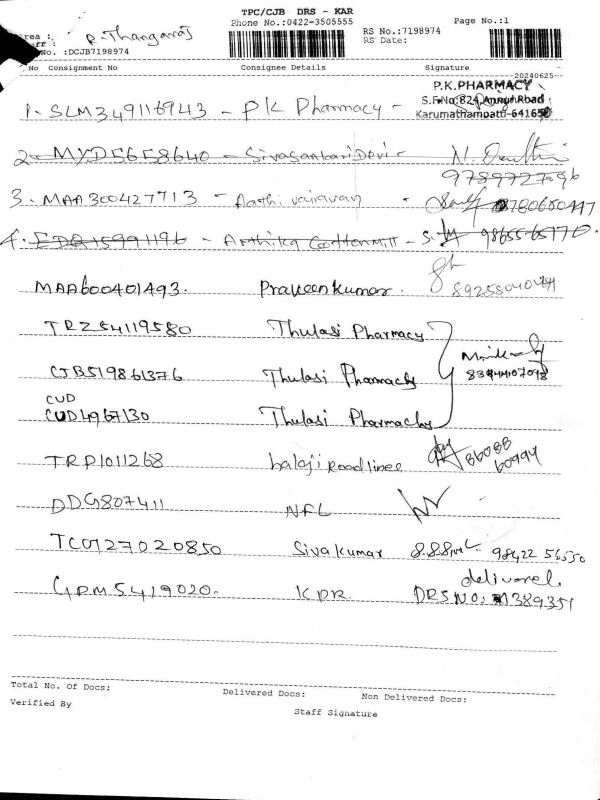 TPC/CJB DRS - KAR
Phone No.:0422-3505555
Page No.:1
Area :
P. Thangaraj
RS No.:7198974
Staff :
RS Date:
No. :DCJB7198974
No Consignment No Consignee Details Signature
20240625
P.K.PHARMACY
S.F.No:824, Annur Road
Karumathampatti-641659
1. SLM349116943 - PK Pharmacy -
2 MYD5658640 - SivasankariDevi -
9789772796
3. MAA300427713 - Aathi vairavan - 8780680447
4. EDQ15991196 - Arthika Cottonmill - 98655-65977
MAA600401493. Praveenkumar. 8925804044
TRZ54119580 Thulasi Pharmacy
CJB519861376 Thulasi Pharmachy
CUD
CUD4967130 Thulasi Pharmachy
TRP1011268 balaji Roadlines 86088
60994
DDG807411 NFL
TCO127020850 Sivakumar 98422 56550
delivered.
GPM5419020. KPR. DRS NO: 389351
Total No. Of Docs: Delivered Docs: Non Delivered Docs:
Verified By
Staff Signature